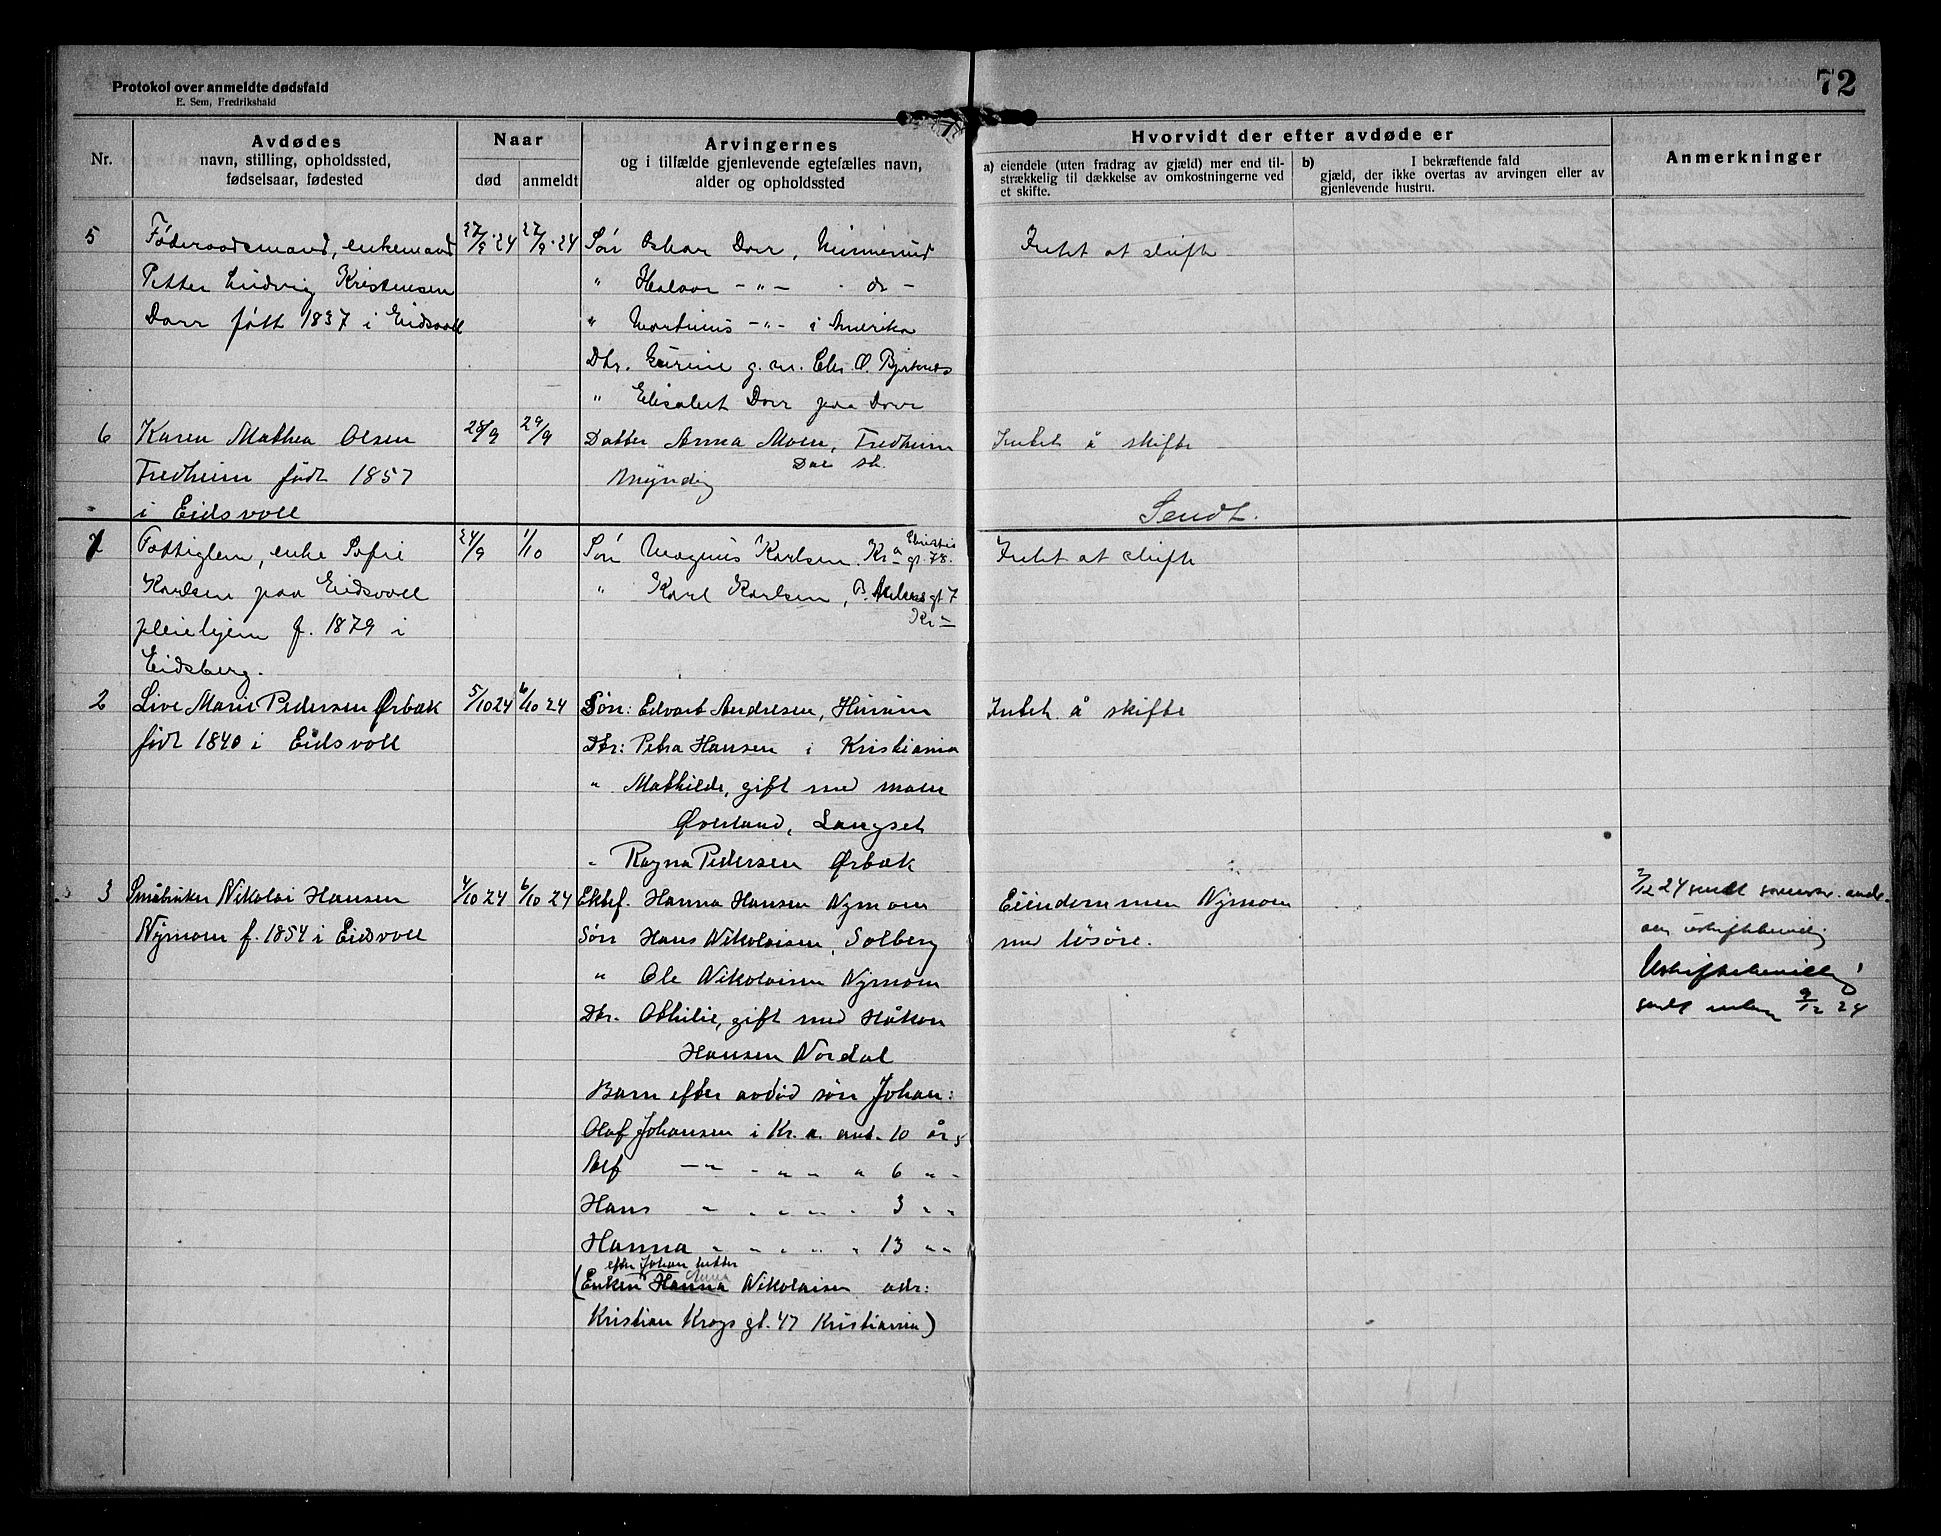 Protokol over anmeldte dødsfald
E. Sem, Fredrikshald
72
Nr.
Avdødes
navn, stilling, opholdssted,
fødselsaar, fødested
Naar
død
anmeldt
Arvingernes
og i tilfælde gjenlevende egtefælles navn,
alder og opholdssted
Hvorvidt der efter avdøde er
a) eiendele (uten fradrag av gjæld) mer end til-
strækkelig til dækkelse av omkostningerne ved
et skifte.
b) I bekræftende fald
gjæld, der ikke overtas av arvingen eller av
gjenlevende hustru.
Anmerkninger
5 Föderaadsmand, enkemand 27/9.24 27/9.24 Søn Oskar Dorr, Minnesund Intet at skifte
Petter Ludvig Kristensen " Halvor -"- do -
Dorr født 1837 i Eidsvoll " Martinus -"- i Amerika
Dtr. g.m. O. Bjerknes
" Elisabet Dorr paa Dorr
6 Karen Mathea Olsen 28/9 29/9 Datter Anna Moen, Fredheim Intet å skifte
Fredheim født 1857 Dal st.
Myndig
i Eidsvoll Sendt.
1 Fattiglem, enke Sofie 24/9 1/10 Søn Magnus Karlsen Kr.a gt. 78. Intet at skifte
Karlsen paa Eidsvoll " Karl Karlsen, gt 7
Kr.
pleiehjem f. 1879 i
Eidsberg.
2 Live Marie Pedersen Ørbæk 5/10 24 6/10 24 Søn: Edvart Andresen, Intet å skifte
født 1840 i Eidsvoll Dtr: Petra Hansen i Kristiania
" Mathilde, gift med
Øverland, Langset
" Ragna Pedersen Ørbæk
3 Småbruker Nikolai Hansen 4/10 24 6/10 24 Ektef. Hanna Hansen Nymoen Eiendommen Nymoen
Nymoen f. 1854 i Eidsvoll Søn Hans Nikolaisen, Solberg med løsøre.
" Ole Nikolaisen Nymoen
Dtr. Othilie, gift med Håkon
Hansen Nordal
Barn efter avdød søn Johan:
Olaf Johansen i Kr.a. 10 år
Alf -"- " " " 6 " "
Hans " " " " 3 " "
Hanna " " " " 13 " "
efter Johan
Anna
(Enken Hanna Nikolaisen adr:
Kristian Krogs gt. 47 Kristiania)
/12 24 sendt
om uskiftebevilling
Uskiftebevilling
sendt 9/12 24